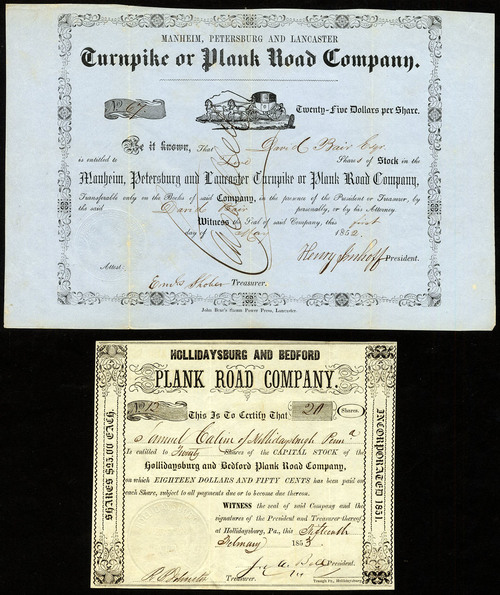 MANHEIM, PETERSBURG AND LANCASTER
Turnpike or Plank Road Company.
No. 67 Twenty-Five Dollars per Share.
Be it known, That David Bair Esqr
is entitled to Five Shares of Stock in the
Manheim, Petersburg and Lancaster Turnpike or Plank Road Company,
Transferable only on the Books of said Company, in the presence of the President or Treasurer, by
the said David Bair personally, or by his Attorney
Witness the Seal of said Company, this first
day of May 1852.
Henry Imhoff President.
Attest.
Treasurer.
John Bear's Steam Power Press, Lancaster.
HOLLIDAYSBURG AND BEDFORD
PLANK ROAD COMPANY.
No 12 This Is To Certify That 20 Shares.
Samuel Calvin of Hollidaysburgh Penna
Is entitled to Twenty Shares of the CAPITAL STOCK of the
Hollidaysburg and Bedford Plank Road Company,
on which EIGHTEEN DOLLARS AND FIFTY CENTS has been paid on
each Share, subject to all payments due or to become due thereon.
WITNESS the seal of said Company and the
signatures of the President and Treasurer thereof
at Hollidaysburg, Pa., this Sixteenth
February 1853
President.
Treasurer.
Traugh Pr., Hollidaysburg.
SHARES $25.00 EACH.
INCORPORATED 1851.